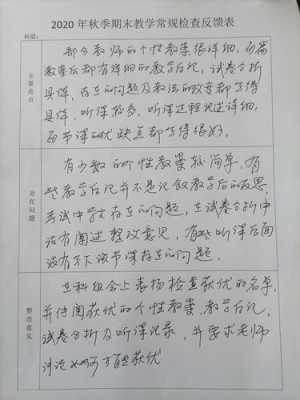 2020年秋季期末教学常规检查反馈表
科组：
主要亮点
部分教师的个性教案很详细，每篇
教案后都有详细的教学后记，试卷分析
具体，存在的问题及教法的改革都写得
具体，听课较多，听课过程记述详细，
每节课的优缺点都写得很好。
存在问题
有少数的个性教案较简单，有
些教学后记并不是记叙教学后的反思，
考试中学生存在的问题，在试卷分析中
没有阐述整改意见，有些听课后面
没有写下该节课存在的问题。
整改意见
在科组会上表扬检查获优的名单，
并传阅获优的个性教案、教学后记，
试卷分析及听课记录，并要求老师
讨论如何才能获优